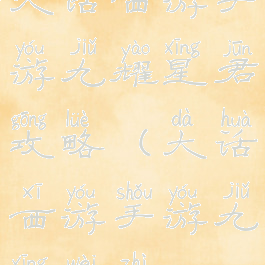 大话西游手
yóu jiǔ yào xīng jūn
游九耀星君
gōng lüè dà huà
攻略（大话
xī yóu shǒu yóu jiǔ
西游手游九